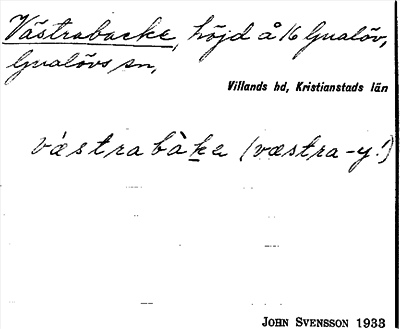 Västrabacke, höjd å 16 Gualöv,
Gualövs sn,
Villands hd, Kristianstads län
vǽstrabàke (væstra-y!)
JOHN SVENSSON 1933